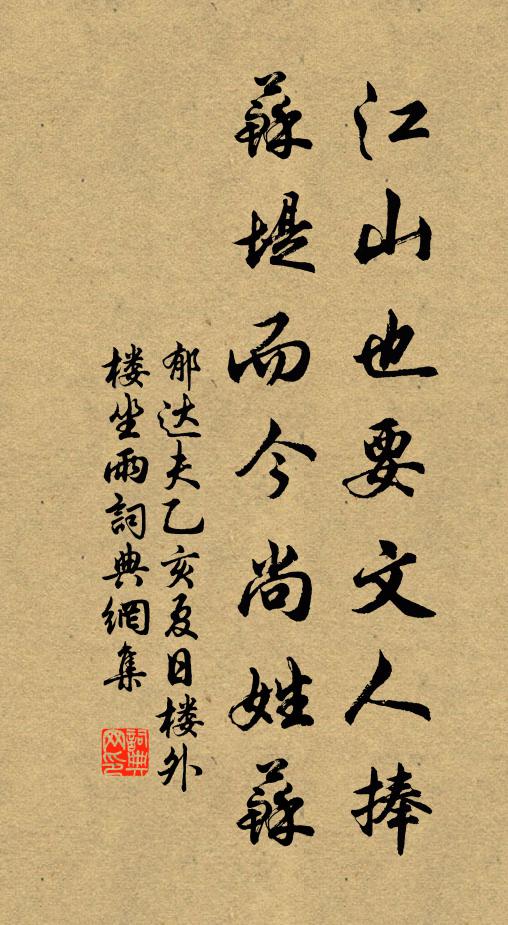 江山也要文人捧
蘇堤而今尚姓蘇
郁达夫乙亥夏日楼外
楼坐雨詞典網集